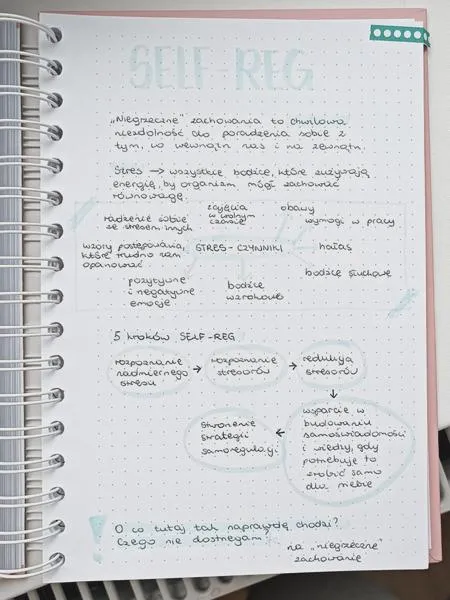 SELF-REG
„Niegrzeczne" zachowania to chwilowa
niezdolność do poradzenia sobie z
tym, co wewnątrz nas i na zewnątrz.
Stres → wszystkie bodźce, które zużywają
energię, by organizm mógł zachować
równowagę.
radzenie sobie
ze stresem innych
zajęcia
w wolnym
czasie
obawy
wymogi w pracy
wzory postępowania,
które trudno nam
opanować
STRES - CZYNNIKI
hałas
bodźce słuchowe
pozytywne
i negatywne
emocje
bodźce
wzrokowe
5 kroków SELF-REG
rozpoznanie
nadmiernego
stresu
→ rozpoznanie
stresorów
→ redukcja
stresorów
↓
wsparcie w
budowaniu
samoświadomości
i wiedzy, gdy
potrzebuję to
zrobić samo
dla siebie
←
stworzenie
strategii
samoregulacji
! O co tutaj tak naprawdę chodzi?
Czego nie dostrzegam?
na „niegrzeczne"
zachowanie